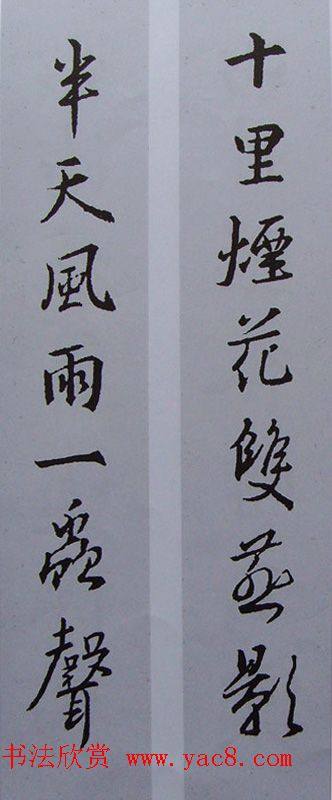 十里煙花雙燕影
半天風雨一聲
书法欣赏 www.yac8.com